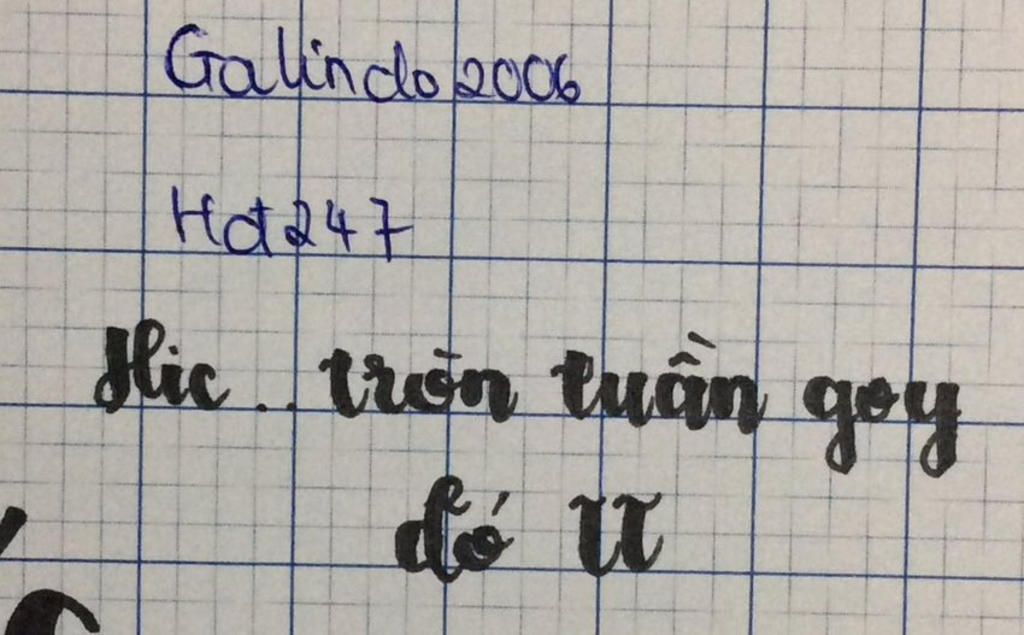 Galindo2006
Hdt247
Hic.. tròn tuần goy
đó TT